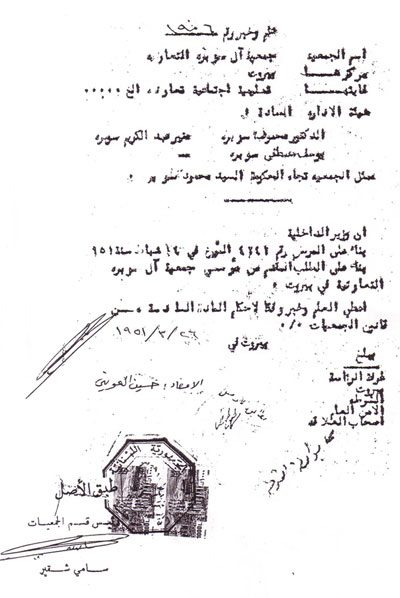 علم وخبر رقم ١٩٠٦
اسم الجمعية جمعية آل سوبره التعاونيه
مركزها بيروت
غايتها تعليمية اجتماعية تعاون الخ
هيئة الادارة السادة
الدكتور محمود سوبره خضر عبد الكريم سوبره
يوسف مصطفى سوبره
ممثل الجمعية تجاه الحكومة السيد محمود سوبره
ان وزير الداخلية
بناء على المرسوم رقم ٤٢٤١ المؤرخ في ١٤ شباط سنة ٩٥١
بناء على الطلب المقدم من مؤسسي جمعية آل سوبره
التعاونية في بيروت
اعطي العلم وخبر وفقا لاحكام المادة السادسة من
قانون الجمعيات
بيروت في ١٩٥١/٣/٢٦
الامضاء : حسين العويني
يبلغ
غرفة الرئاسة
بيروت
الشرطة
الامن العام
اصحاب العلاقة
الجمهورية اللبنانية
طبق الأصل
رئيس قسم الجمعيات
سامي شقير